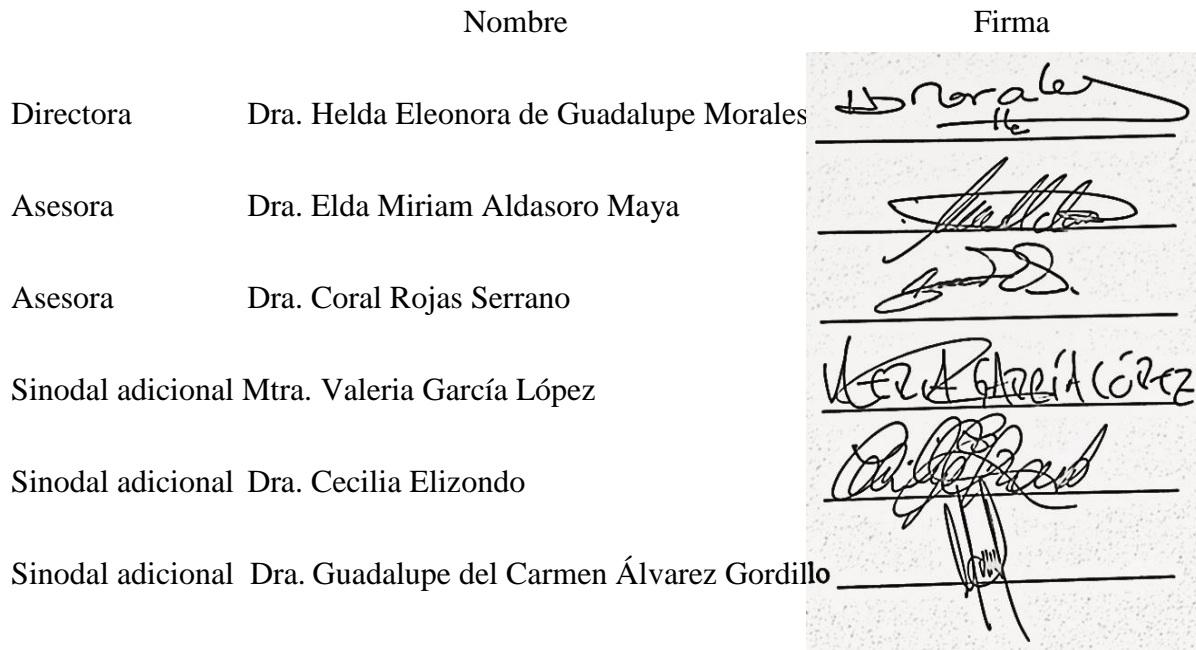 Nombre Firma
Directora Dra. Helda Eleonora de Guadalupe Morales
Morales
Asesora Dra. Elda Miriam Aldasoro Maya
Asesora Dra. Coral Rojas Serrano
Sinodal adicional Mtra. Valeria García López
VALERIA GARCÍA LÓPEZ
Sinodal adicional Dra. Cecilia Elizondo
Sinodal adicional Dra. Guadalupe del Carmen Álvarez Gordillo